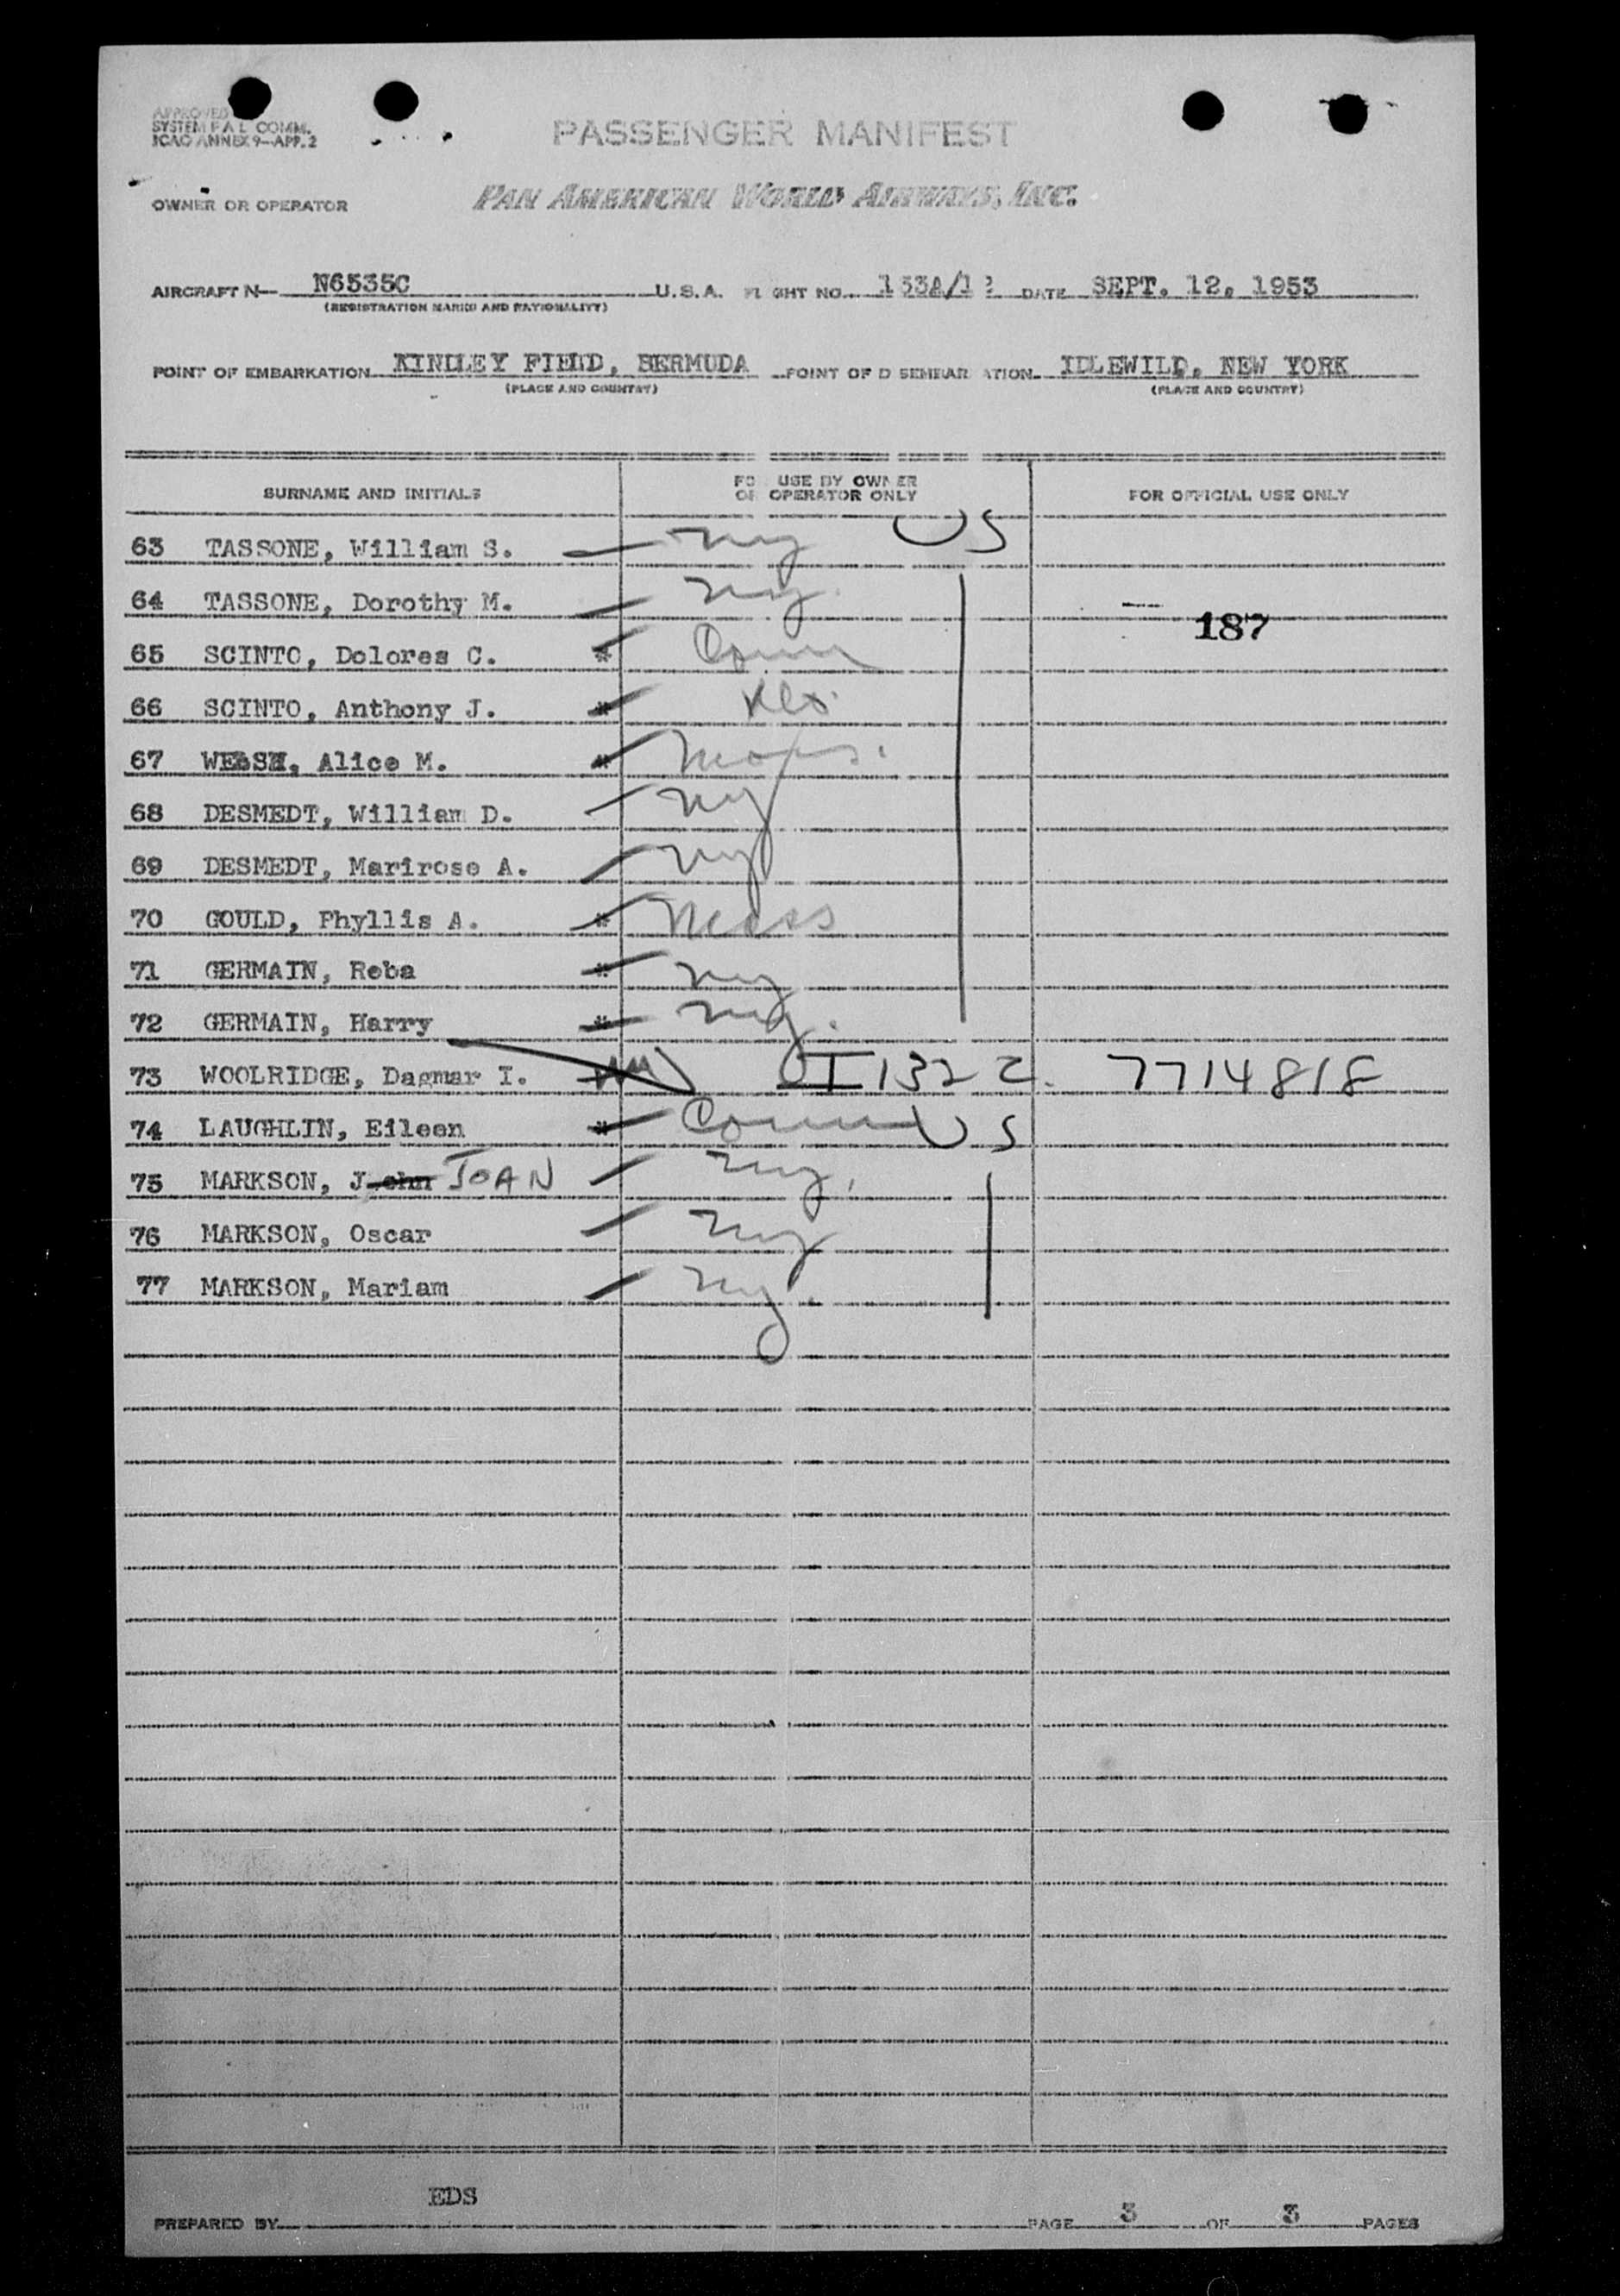 APPROVED
SYSTEM F A L COMM.
ICAO ANNEX 9—APP. 2
PASSENGER MANIFEST
OWNER OR OPERATOR PAN AMERICAN WORLD AIRWAYS, INC.
AIRCRAFT N— N6535C U.S.A. FLIGHT NO. 133A/12 DATE SEPT. 12, 1953
(REGISTRATION MARKS AND NATIONALITY)
POINT OF EMBARKATION KINDLEY FIELD, BERMUDA POINT OF DISEMBARKATION IDLEWILD, NEW YORK
(PLACE AND COUNTRY) (PLACE AND COUNTRY)
SURNAME AND INITIALS FOR USE BY OWNER OR OPERATOR ONLY FOR OFFICIAL USE ONLY
63 TASSONE, William S. ny US
64 TASSONE, Dorothy M. ny
187
65 SCINTO, Dolores C. * Conn
66 SCINTO, Anthony J. *
67 WELSH, Alice M. * Mass.
68 DESMEDT, William D. ny
69 DESMEDT, Marirose A. ny
70 GOULD, Phyllis A. * Mass
71 GERMAIN, Reba * ny
72 GERMAIN, Harry * ny.
73 WOOLRIDGE, Dagmar I. I 1322. 7714818
74 LAUGHLIN, Eileen * Conn US
75 MARKSON, John JOAN ny.
76 MARKSON, Oscar ny
77 MARKSON, Mariam ny.
PREPARED BY EDS PAGE 3 OF 3 PAGES